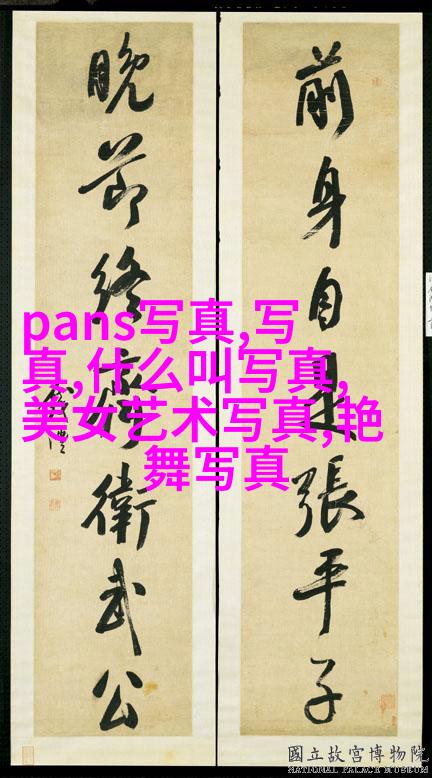 前身自是張平子
晚節終齊衛武公
pans写真,写
真,什么叫写真,
美女艺术写真,艳
舞写真
國立故宮博物院
NATIONAL PALACE MUSEUM